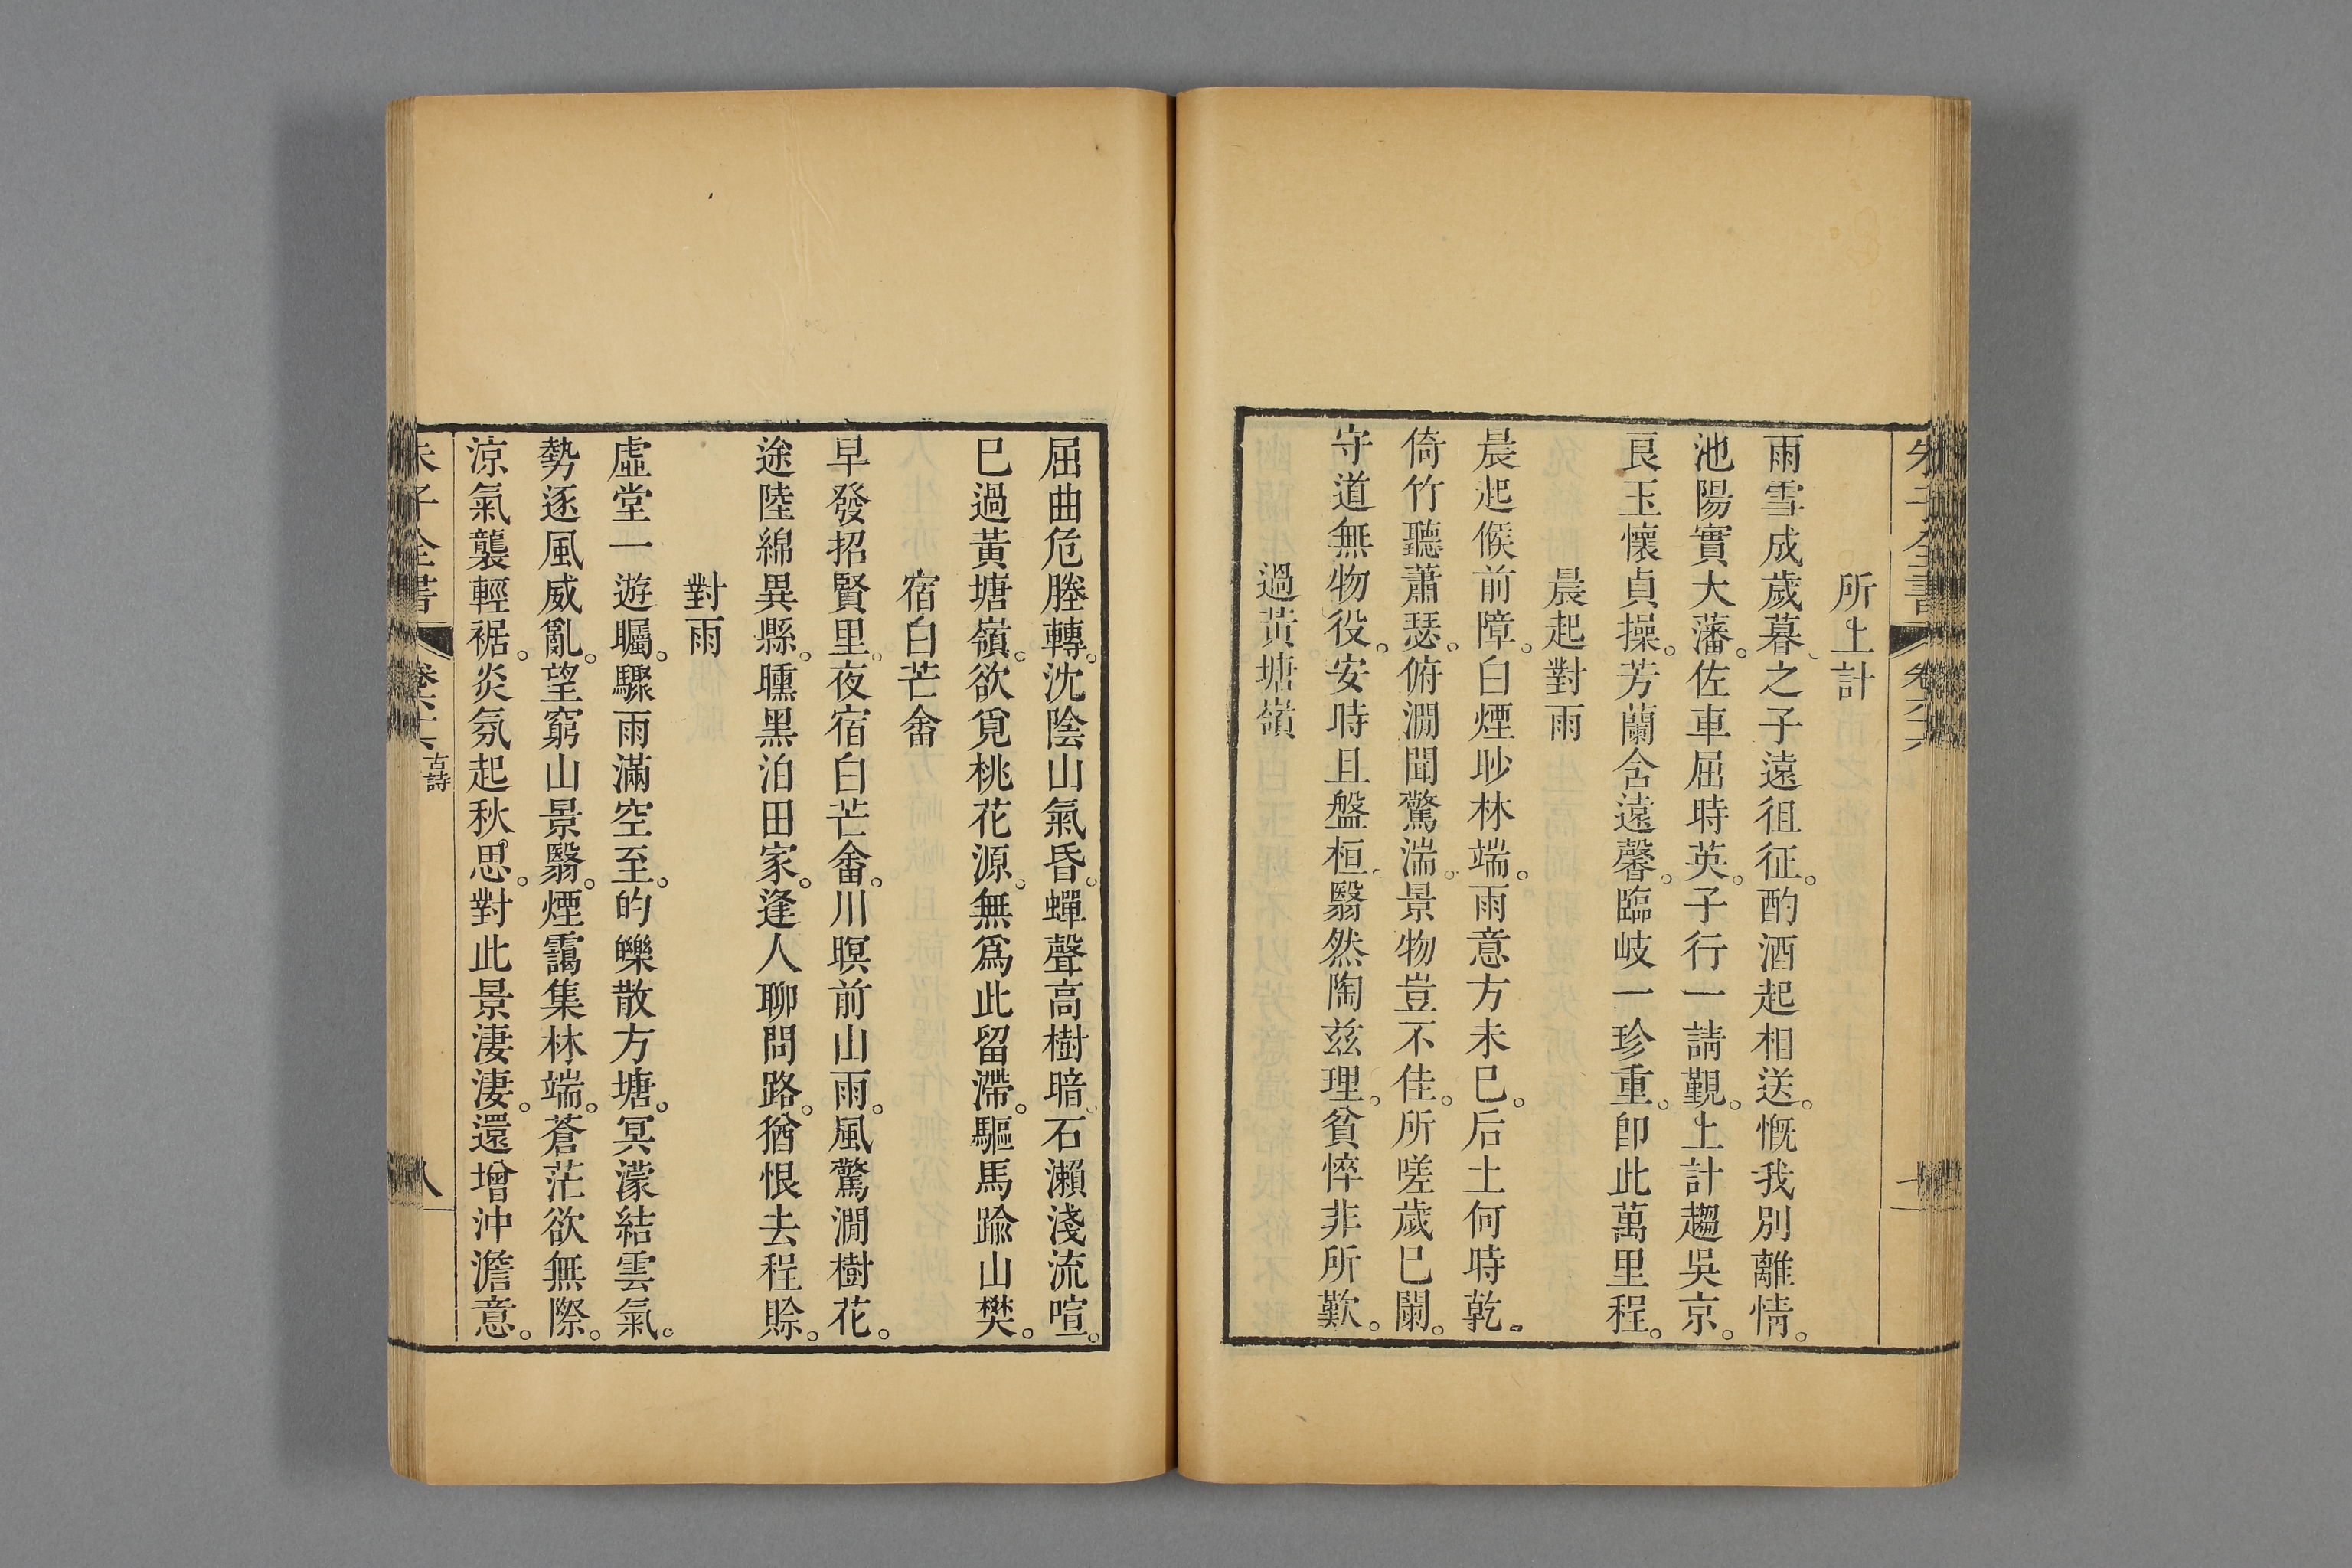 所上計
雨雪成歲暮。之子遠徂征。酌酒起相送。慨我別離情。
池陽實大藩。佐車屈時英。子行一請觀。上計趨吳京。
良玉懷貞操。芳蘭含遠馨。臨岐一珍重。卽此萬里程。
晨起對雨
晨起候前障。白煙眇林端。雨意方未已。后土何時乾。
倚竹聽蕭瑟。俯澗聞驚湍。景物豈不佳。所嗟歲已闌。
守道無物役。安時且盤桓。翳然陶兹理。貧悴非所歎。
過黃塘嶺
屈曲危塍轉。沈陰山氣昏。蟬聲高樹暗。石瀨淺流喧。
已過黃塘嶺。欲覓桃花源。無爲此留滯。驅馬踰山樊。
宿白芒畬
早發招賢里。夜宿白芒畬。川暝前山雨。風驚澗樹花。
途陸綿異縣。曛黑泊田家。逢人聊問路。猶恨去程賒。
對雨
虛堂一遊矚。驟雨滿空至。的皪散方塘。冥濛結雲氣。
勢逐風威亂。望窮山景翳。煙靄集林端。蒼茫欲無際。
涼氣襲輕裾。炎氛起秋思。對此景淒淒。還增沖澹意。
朱子全書 古詩 八